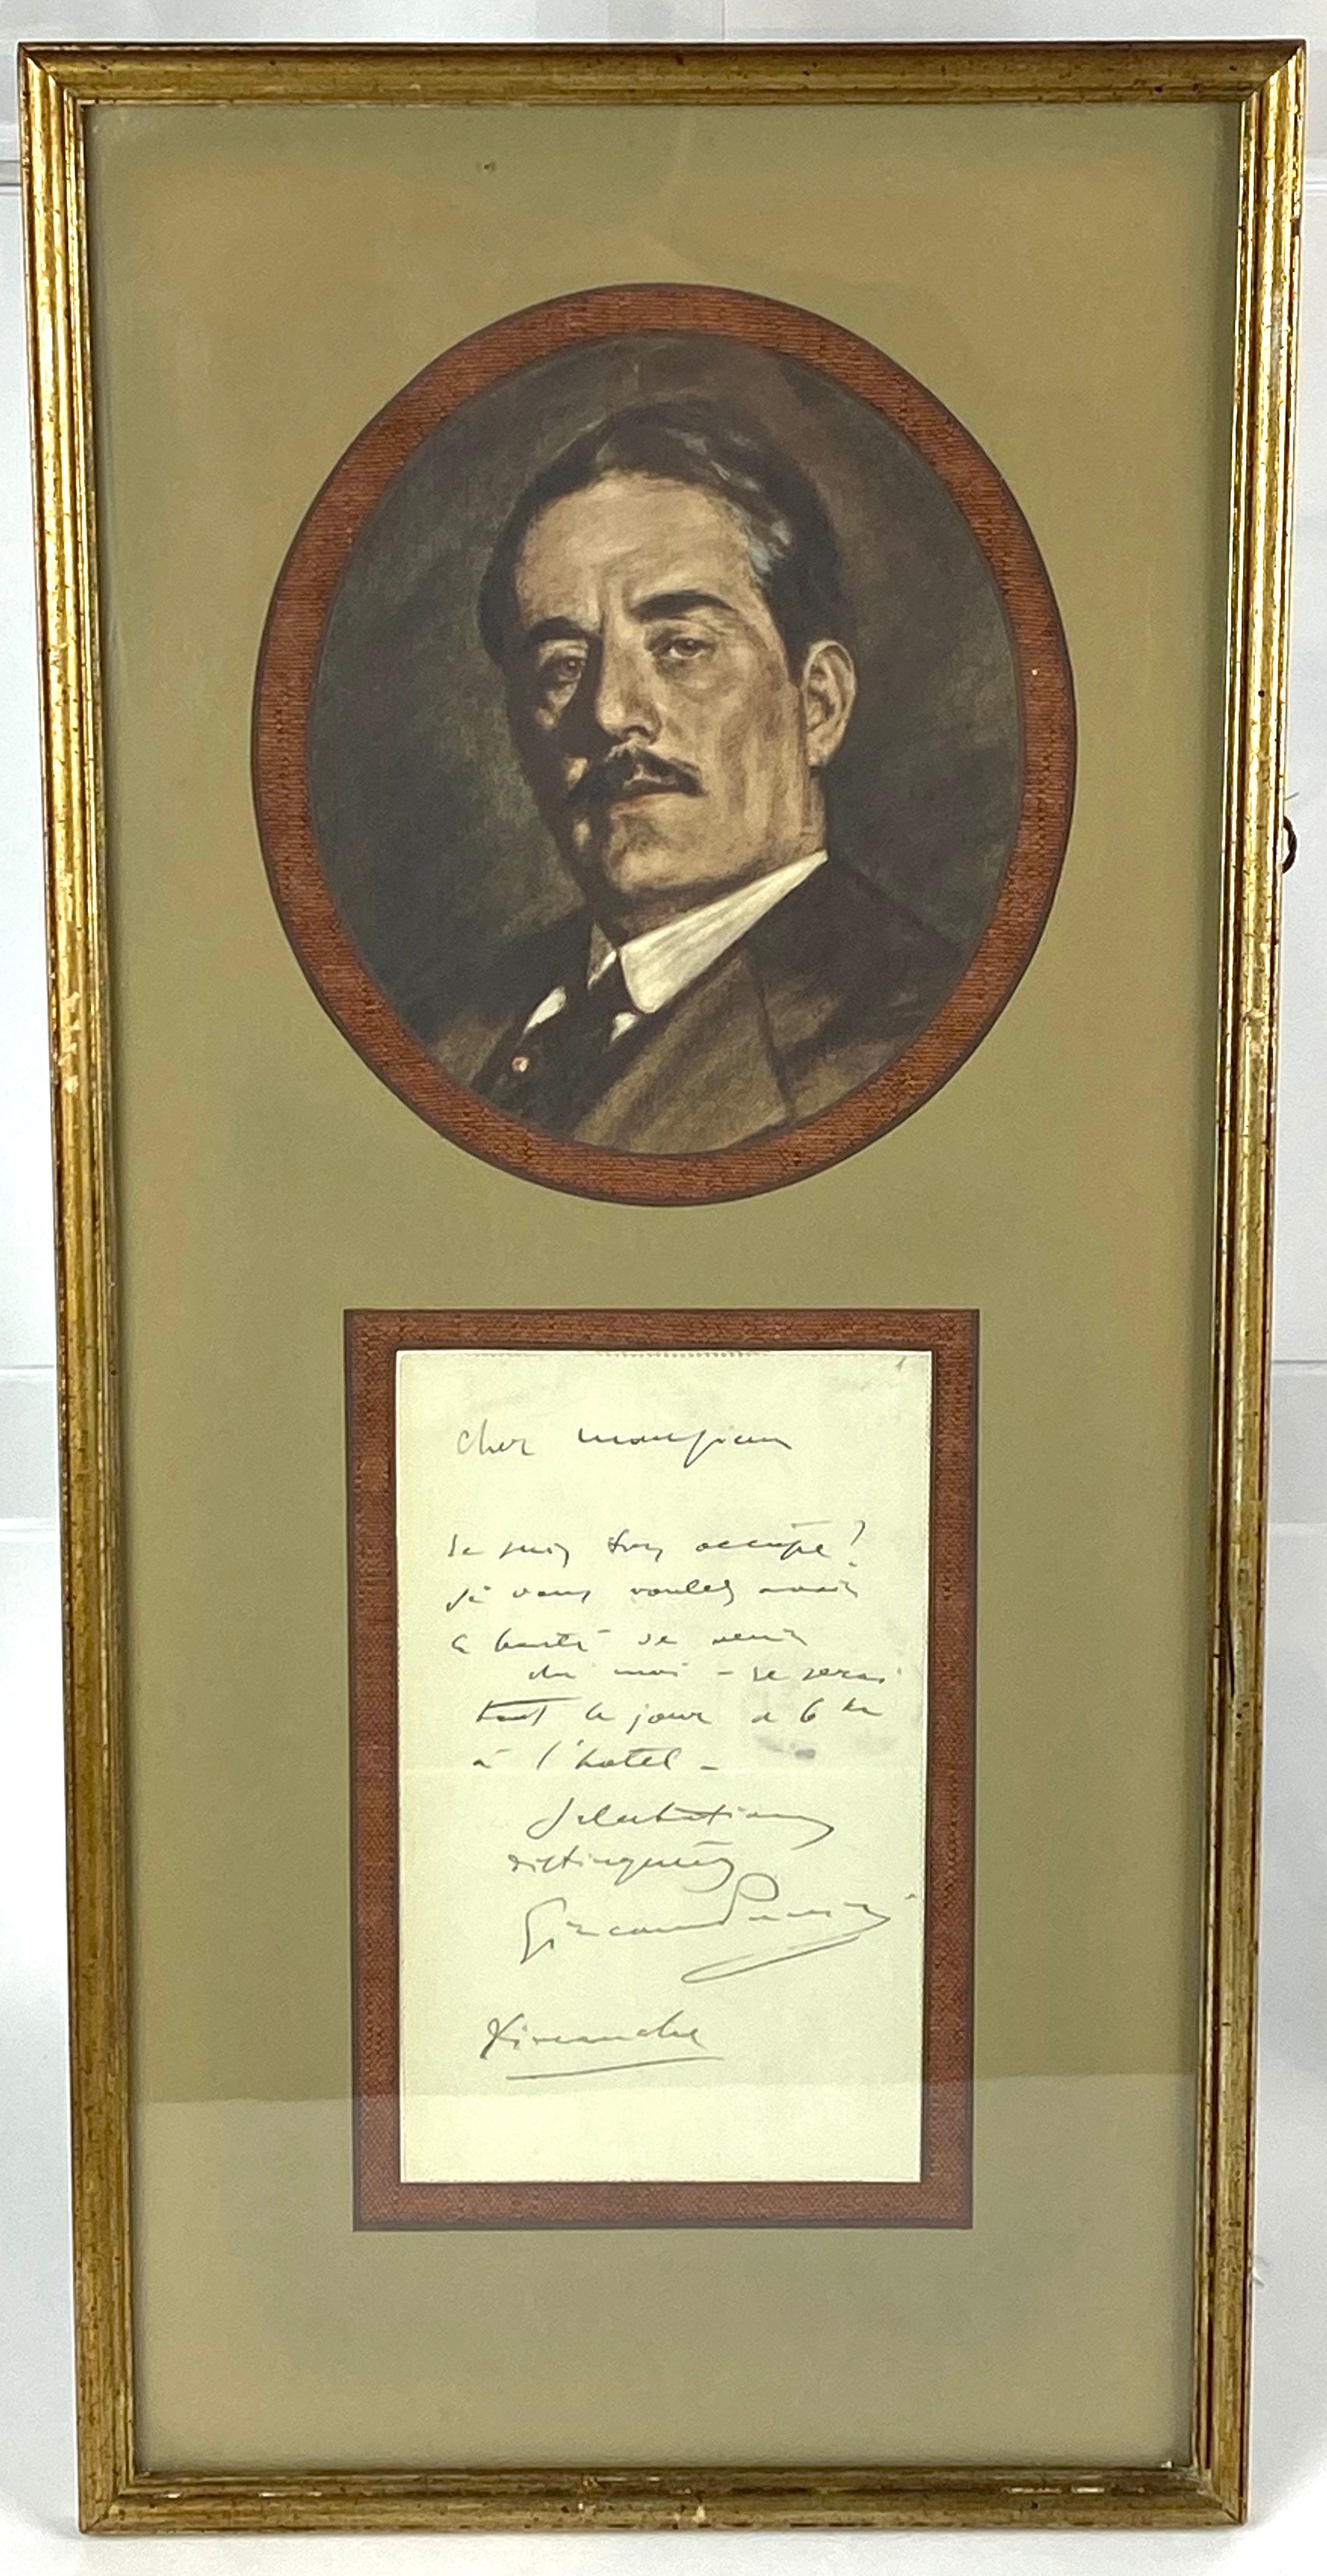 cher monsieur
Je suis très occupé!
Si vous voulez avoir
la bonté de venir
chez moi – je serai
tout le jour à 6 hr
à l'hotel –
Salutations
distinguées
Giacomo Puccini
Dimanche